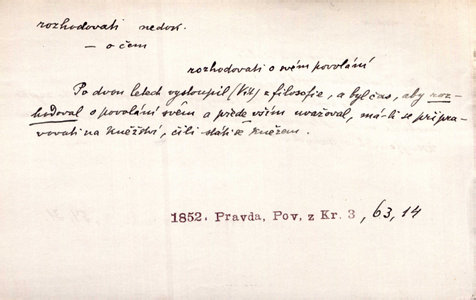 rozhodovati nedok.
— o čem
rozhodovati o svém povolání
Po dvou letech vystoupil (Vít) z filosofie, a byl čas, aby roz-
hodoval o povolání svém a přede vším uvažoval, má-li se připra-
vovati na kněžství, čili státi se knězem.
1852. Pravda, Pov. z Kr. 3, 63, 14